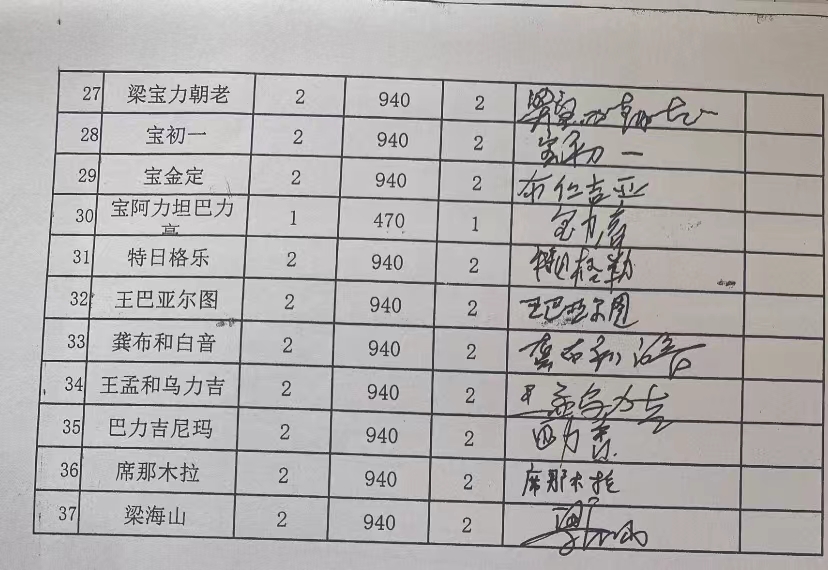 27 梁宝力朝老 2 940 2 梁宝力朝老
28 宝初一 2 940 2 宝初一
29 宝金定 2 940 2 布仁吉亚
30 宝阿力坦巴力高 1 470 1 宝力高
31 特日格乐 2 940 2 特日格勒
32 王巴亚尔图 2 940 2 王巴亚尔图
33 龚布和白音 2 940 2
34 王孟和乌力吉 2 940 2
35 巴力吉尼玛 2 940 2
36 席那木拉 2 940 2 席那木拉
37 梁海山 2 940 2